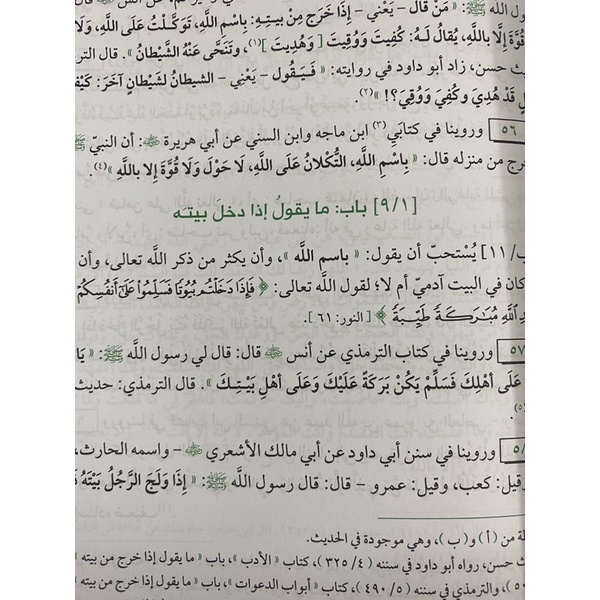 ول الله ﷺ: « مَنْ قَالَ – يَعْني – إذَا خَرَجَ مِنْ بيتِهِ: بِاسْمِ اللَّهِ، تَوَكَّلْتُ عَلَى اللَّهِ، وَلَا
قُوَّةَ إِلَّا بِاللَّهِ، يُقالُ لَهُ: كُفِيتَ وَوُقِيتَ [ وَهُدِيتَ ](١)، وتَنَحَّى عَنْهُ الشَّيْطَانُ ». قال التر
ث حسن، زاد أبو داود في روايته: « فَيَقول – يَعْنِي – الشيطانُ لشَيْطَانٍ آخَرَ: كَيْفَ
لٍ قَدْ هُدِيَ وكُفِيَ وَوُقِيَ؟! »(٢).
٥٦ وروينا في كتابَي(٣) ابن ماجه وابن السني عن أبي هريرة ﷺ: أن النبيّ
خرج من منزله قال: « بِاسْمِ اللَّهِ، التُّكْلَانُ عَلَى اللَّهِ، لَا حَوْلَ وَلَا قُوَّةَ إلا باللهِ »(٤).
[٩/١] باب: ما يقولُ إذا دخلَ بيتَه
ب/١١] يُسْتحبّ أن يقول: « باسم اللَّه »، وأن يكثر من ذكر اللَّه تعالى، وأن
كان في البيت آدميّ أم لا؛ لقول اللَّه تعالى: ﴿ فَإِذَا دَخَلْتُم بُيُوتًا فَسَلِّمُوا عَلَىٰ أَنفُسِكُمْ
دِ اللَّهِ مُبَارَكَةً طَيِّبَةً ﴾ [ النور: ٦١ ].
٥٧ وروينا في كتاب الترمذي عن أنس ﷺ قال: قال لي رسول اللَّه ﷺ: « يَا
عَلَى أَهْلِكَ فَسَلِّمْ يَكُنْ بَرَكَةً عَلَيْكَ وَعَلَى أَهْلِ بَيْتِكَ ». قال الترمذي: حديث
(٥).
٥٨ وروينا في سنن أبي داود عن أبي مالك الأشعري ﷺ – واسمه الحارث،
وقيل: كعب، وقيل: عمرو – قال: قال رسول اللَّه ﷺ: « إِذَا وَلَجَ الرَّجُلُ بَيْتَهُ
لة من ( أ ) و( ب )، وهي موجودة في الحديث.
ث حسن، رواه أبو داود في سننه ( ٤/ ٣٢٥ )، كتاب « الأدب »، باب « ما يقول إذا خرج من بيته
)، والترمذي في سننه ( ٥/ ٤٩٠ )، كتاب « أبواب الدعوات »، باب « ما يقول إذا خرج من بيته